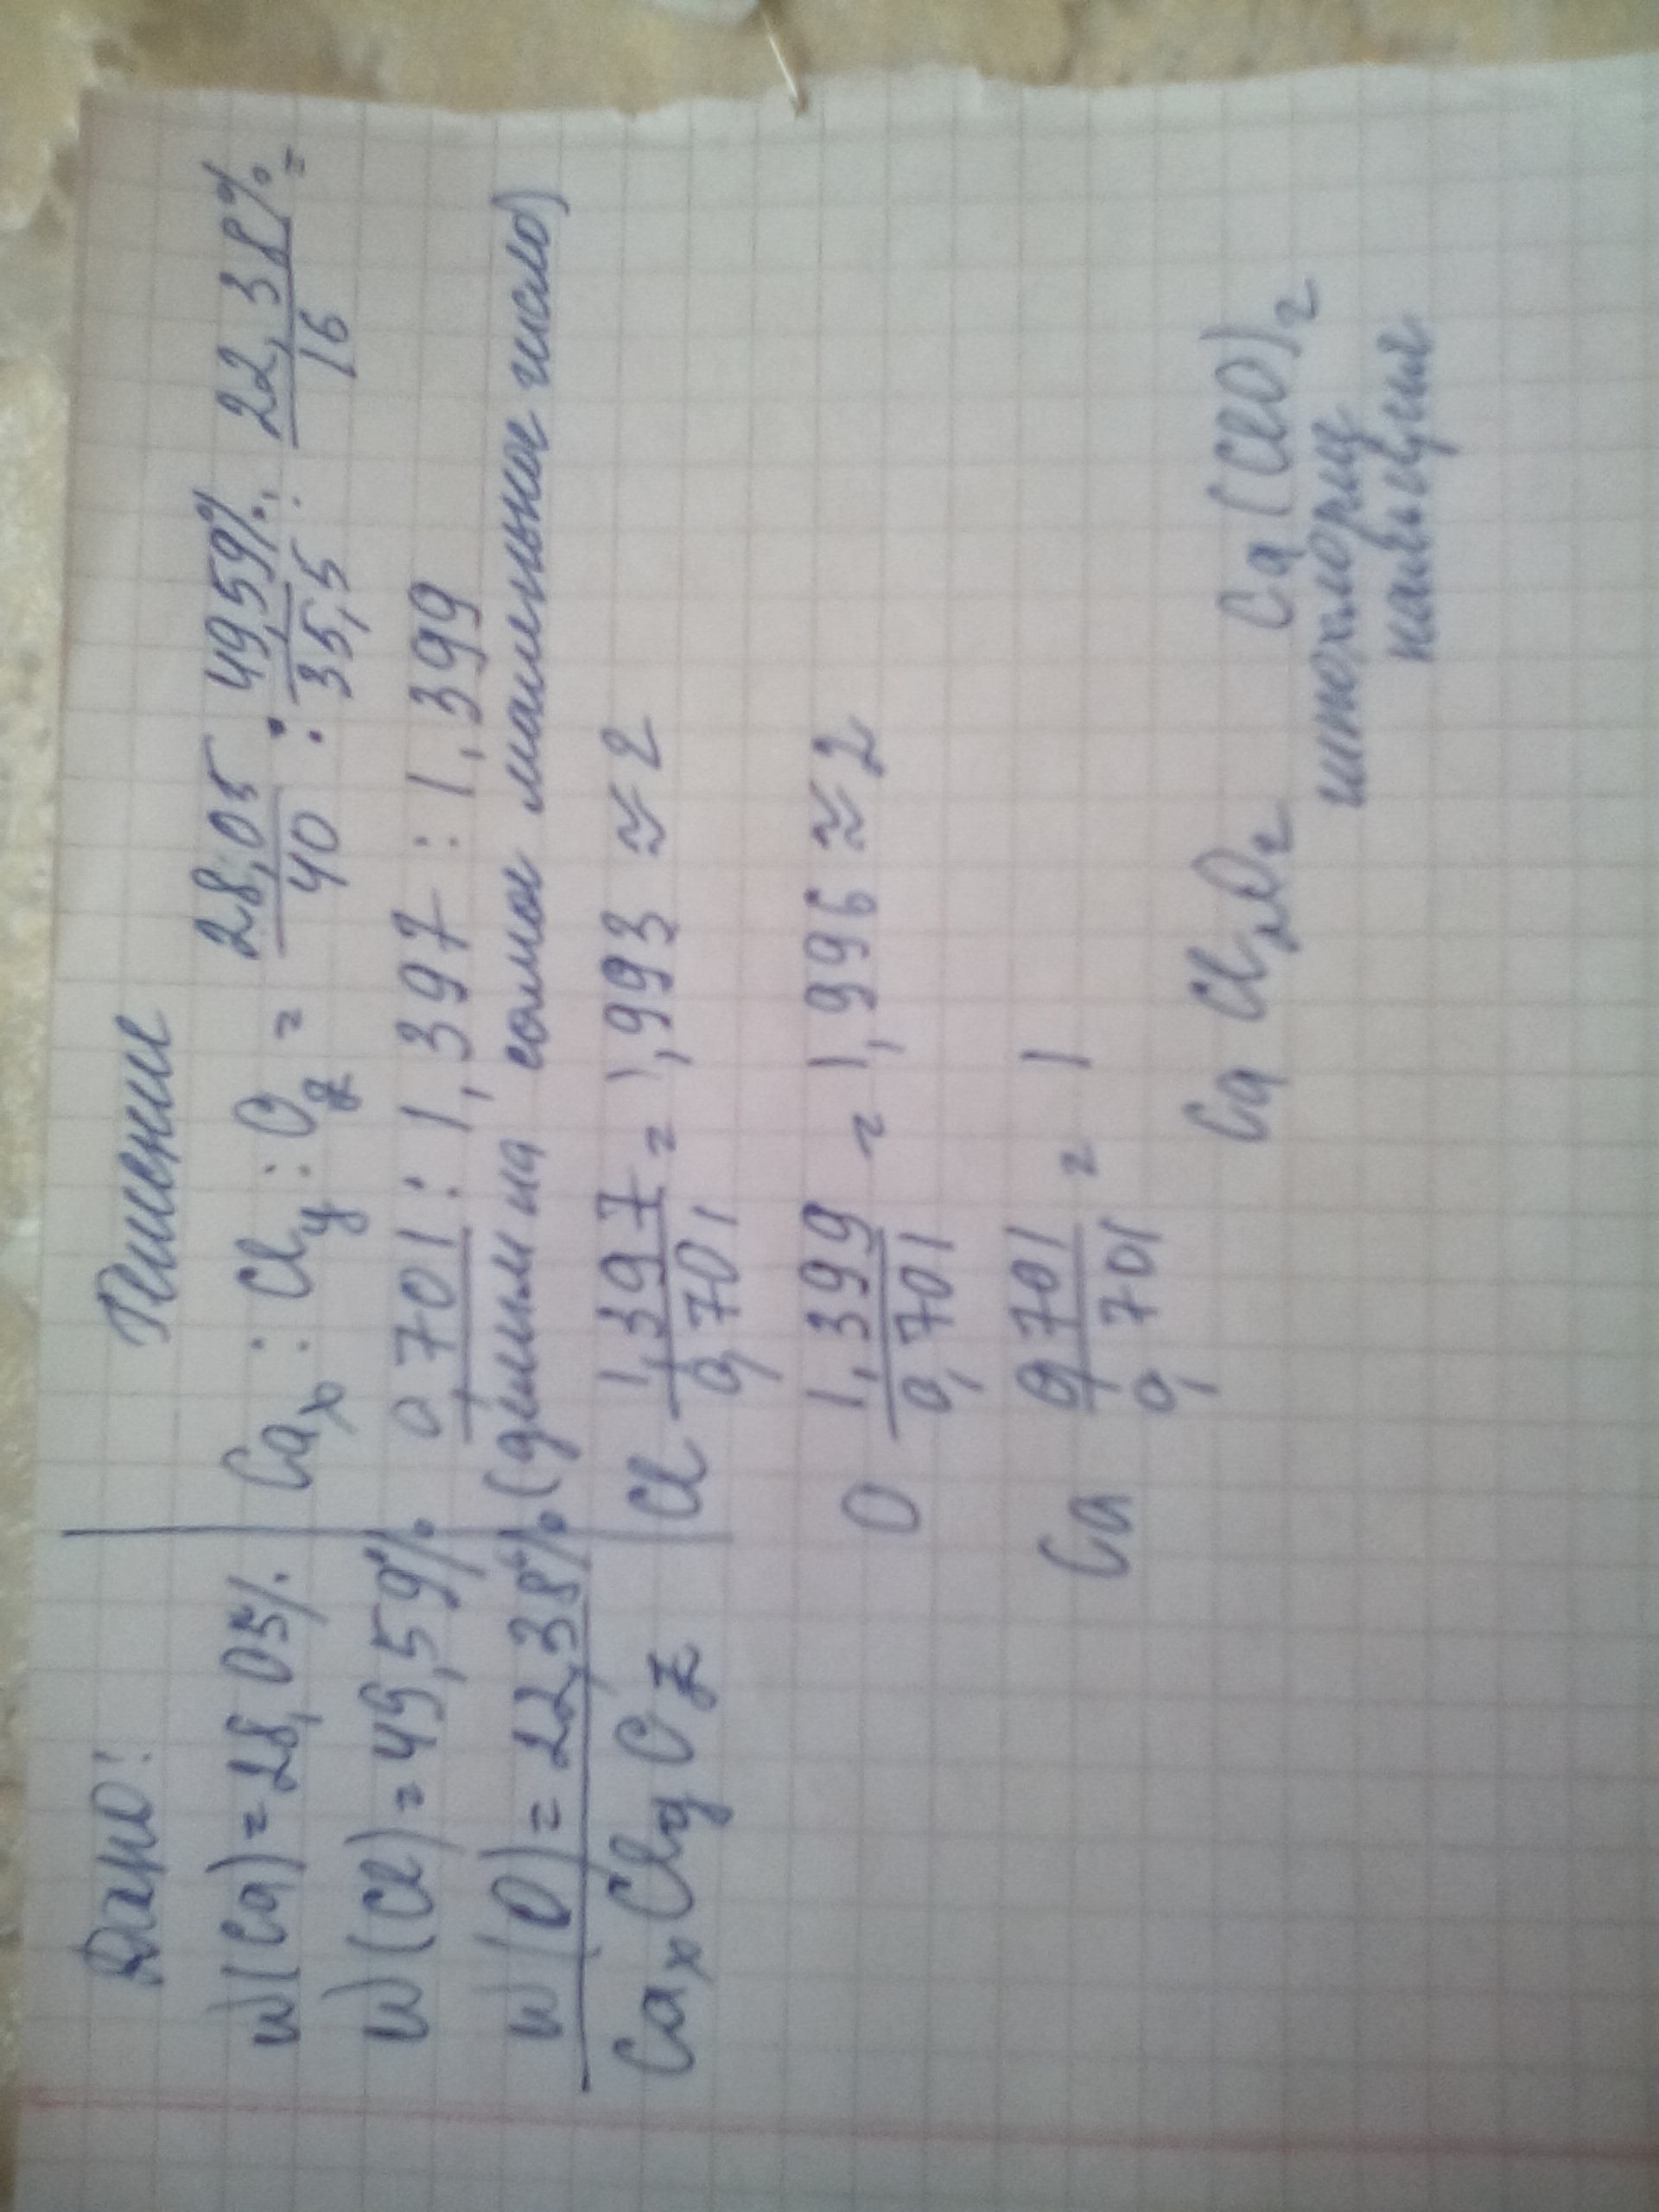 Дано:
Решение
w(Ca)=28,05%
w(Cl)=49,59%
w(O)=22,38%
CaxClyOz
Cax : Cly : Oz = 28,05/40 : 49,59%/35,5 : 22,38%/16 =
0,701 : 1,397 : 1,399
(делим на самое маленькое число)
Cl 1,397/0,701 = 1,993 ≈ 2
O 1,399/0,701 = 1,996 ≈ 2
Ca 0,701/0,701 = 1
CaCl₂O₂ Ca(ClO)₂
кальция